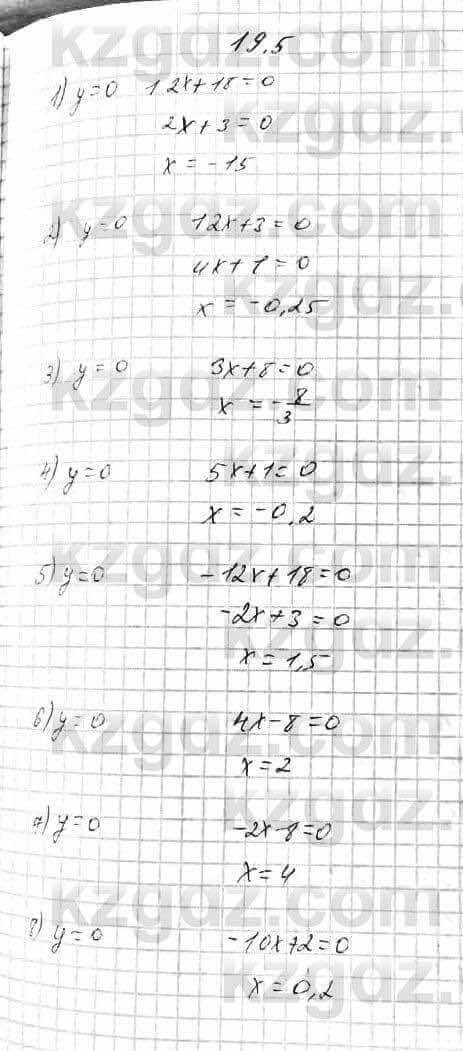 19.5
1) y=0 12x+18=0
2x+3=0
x = -15
2) y=0 12x+3=0
4x+1=0
x = -0,25
3) y=0 3x+8=0
x = -8/3
4) y=0 5x+1=0
x = -0,2
5) y=0 -12x+18=0
-2x+3=0
x=1,5
6) y=0 4x-8=0
x=2
7) y=0 -2x-8=0
x=4
8) y=0 -10x+2=0
x=0,2
kzgdz.com